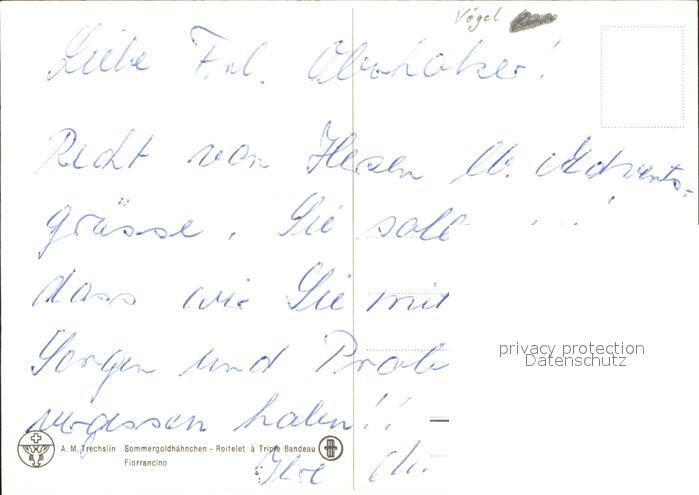 Vögel
Liebe Frl. Oberholzer!
Recht von Herzen lb. Advents-
grüsse. Sie soll
dass wir Sie mit
Sorgen und Prob
vergessen haben!!
privacy protection
Datenschutz
A. M. Trechslin Sommergoldhähnchen - Roitelet à Triple Bandeau
Fiorrancino
Ihre